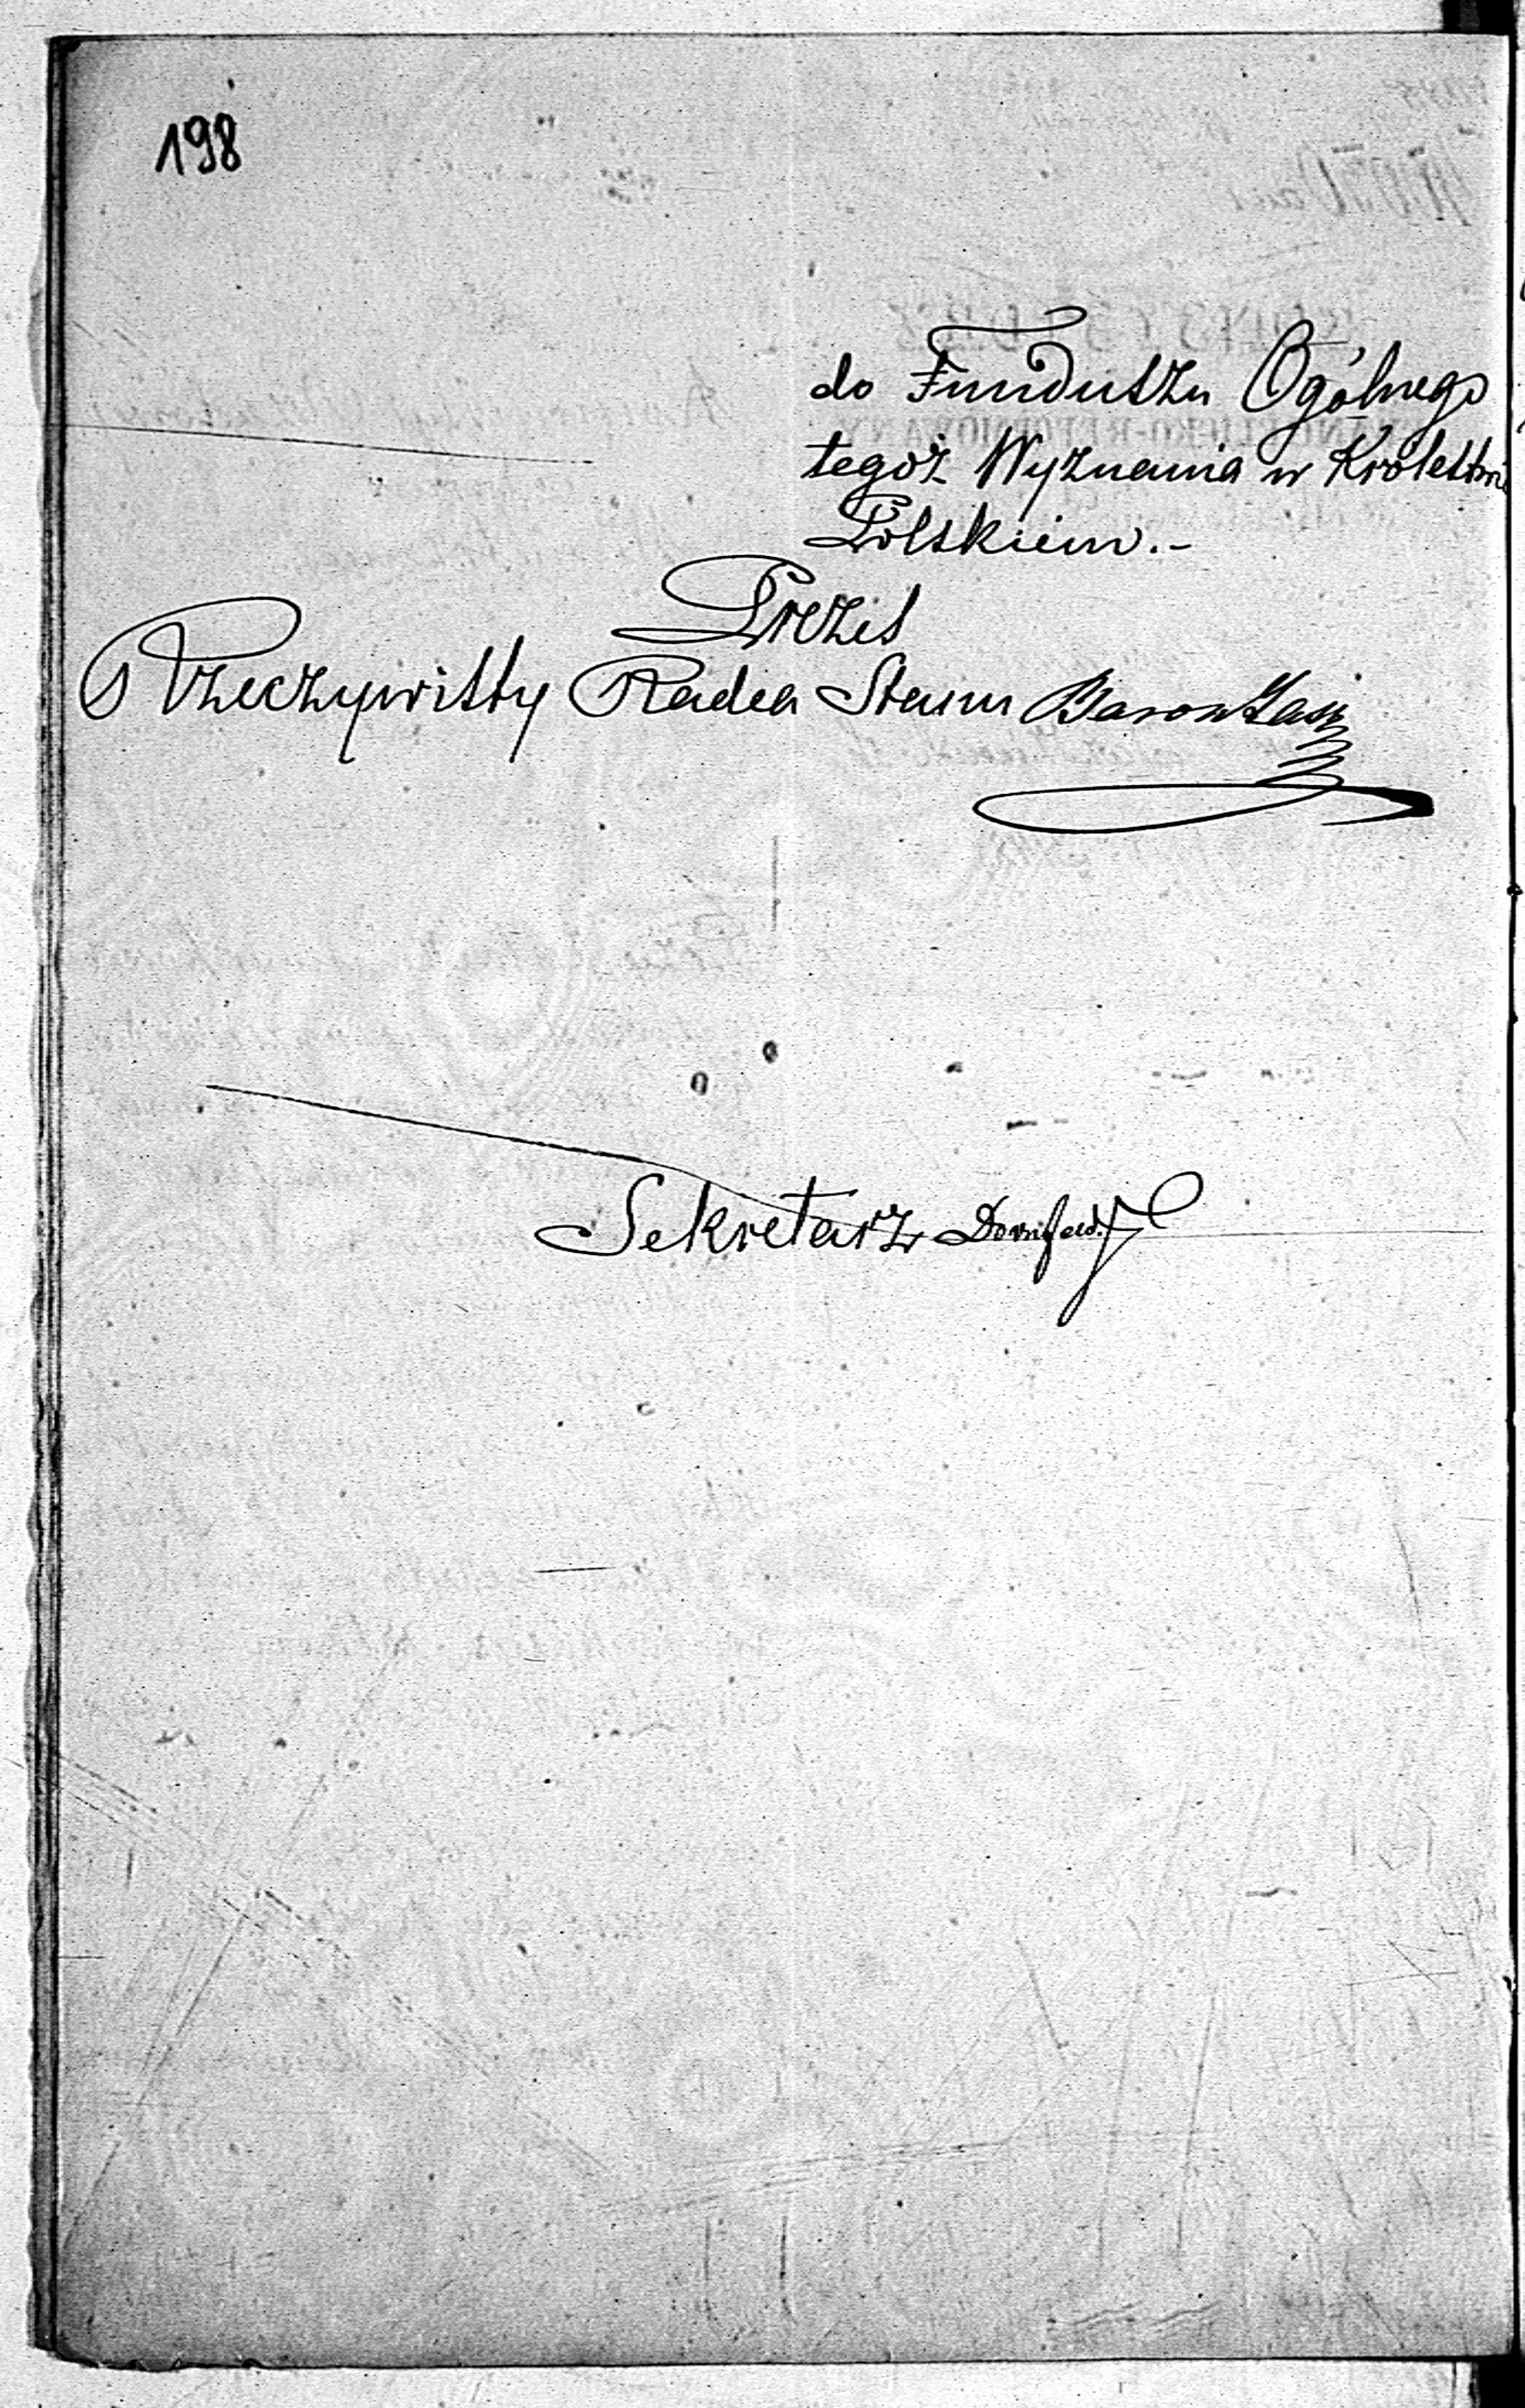 198
do Funduszu Ogólnego
tegoż Wyznania w Królestwie
Polskiem.-
Prezes
Rzeczywisty Radca Stanu Baron
Sekretarz